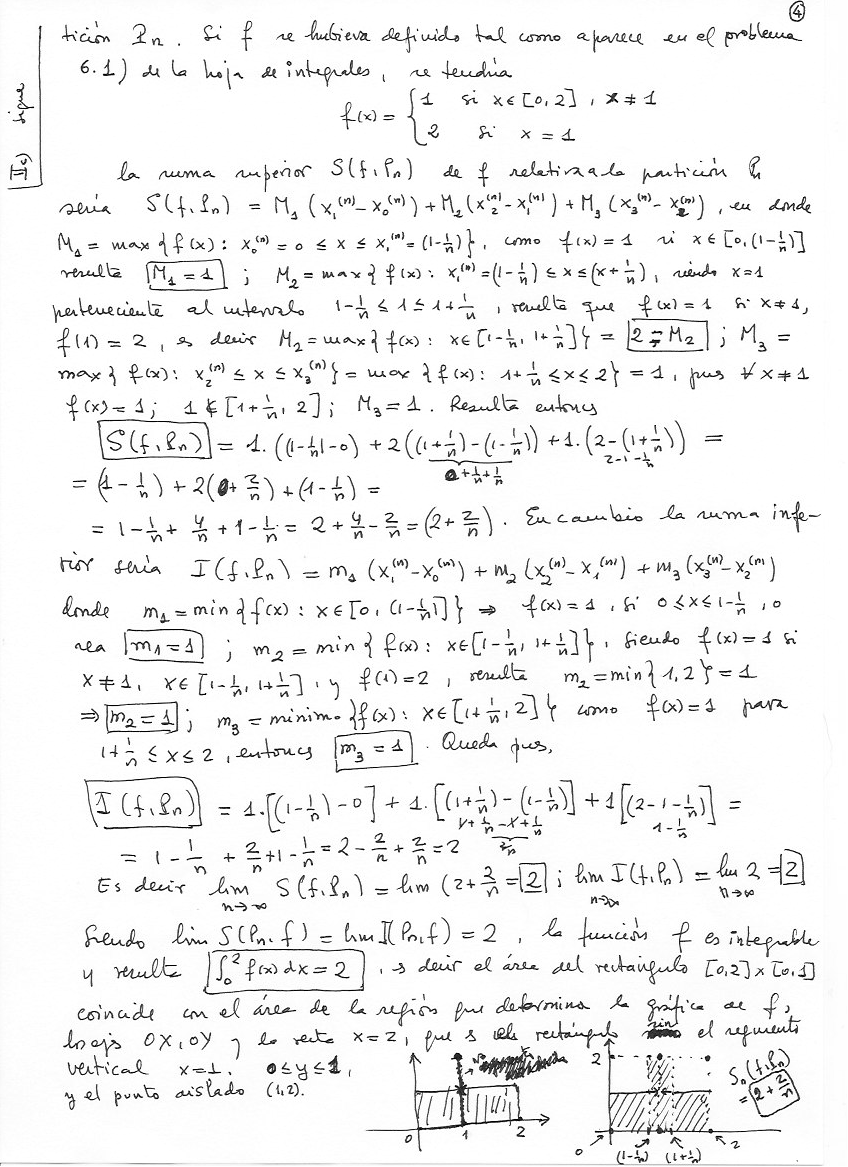 ④
IIc) sigue
tición Pn. Si f se hubiera definido tal como aparece en el problema
6.1) de la hoja de integrales, se tendría
f(x) = { 1 si x∈[0,2], x≠1
2 si x = 1
la suma superior S(f,Pn) de f relativa a la partición Pn
sería S(f,Pn) = M₁ (x₁⁽ⁿ⁾-x₀⁽ⁿ⁾) + M₂(x₂⁽ⁿ⁾-x₁⁽ⁿ⁾) + M₃ (x₃⁽ⁿ⁾-x₂⁽ⁿ⁾), en donde
M₁ = max {f(x): x₀⁽ⁿ⁾=0 ≤ x ≤ x₁⁽ⁿ⁾=(1-1/n)}, como f(x)=1 si x∈[0,(1-1/n)]
resulta M₁=1 ; M₂=max{ f(x): x₁⁽ⁿ⁾=(1-1/n) ≤ x ≤ (x+1/n), siendo x=1
perteneciente al intervalo 1-1/n ≤ 1 ≤ 1+1/n, resulta que f(x)=1 si x≠1,
f(1) = 2, es decir M₂=max{ f(x): x∈[1-1/n, 1+1/n]} = 2=M₂ ; M₃ =
max{ f(x): x₂⁽ⁿ⁾ ≤ x ≤ x₃⁽ⁿ⁾} = max {f(x): 1+1/n ≤x≤2} = 1, pues ∀ x≠1
f(x)=1; 1∉[1+1/n, 2]; M₃=1. Resulta entonces
S(f,Pn) = 1.((1-1/n)-0) + 2((1+1/n)-(1-1/n)) + 1.(2-(1+1/n)) =
0+1/n+1/n 2-1-1/n
= (1-1/n) + 2(0+2/n) + (1-1/n) =
= 1-1/n + 4/n + 1-1/n = 2+4/n-2/n = (2+2/n). En cambio la suma infe-
rior sería I(f,Pn) = m₁ (x₁⁽ⁿ⁾-x₀⁽ⁿ⁾) + m₂ (x₂⁽ⁿ⁾-x₁⁽ⁿ⁾) + m₃ (x₃⁽ⁿ⁾-x₂⁽ⁿ⁾)
donde m₁=min{f(x): x∈[0, (1-1/n)]} ⇒ f(x)=1, si 0≤x≤1-1/n, o
sea m₁=1 ; m₂ = min{ f(x): x∈[1-1/n, 1+1/n]}, siendo f(x)=1 si
x≠1, x∈[1-1/n, 1+1/n], y f(1)=2, resulta m₂=min{1,2}=1
⇒ m₂=1 ; m₃ = mínimo {f(x): x∈[1+1/n, 2]} como f(x)=1 para
1+1/n ≤ x ≤ 2, entonces m₃=1. Queda pues,
I(f,Pn) = 1.[(1-1/n)-0] + 1.[(1+1/n)-(1-1/n)] + 1[(2-1-1/n)] =
1+1/n-1+1/n 1-1/n
2/n
= 1-1/n + 2/n+1-1/n = 2-2/n+2/n = 2
Es decir lim n→∞ S(f,Pn) = lim (2+2/n = 2 ; lim n→∞ I(f,Pn) = lim n→∞ 2 = 2
Siendo lim S(Pn,f) = lim I(Pn,f) = 2, la función f es integrable
y resulta ∫₀² f(x)dx = 2, es decir el área del rectángulo [0,2]x[0,1]
coincide con el área de la región que determina la gráfica de f,
los ejes OX, OY y la recta x=2, que es el rectángulo sin el segmento
vertical x=1, 0≤y≤1,
y el punto aislado (1,2).
0 1 2
2 Sn(f,Pn) = 2+2/n
0 (1-1/n) (1+1/n) 2